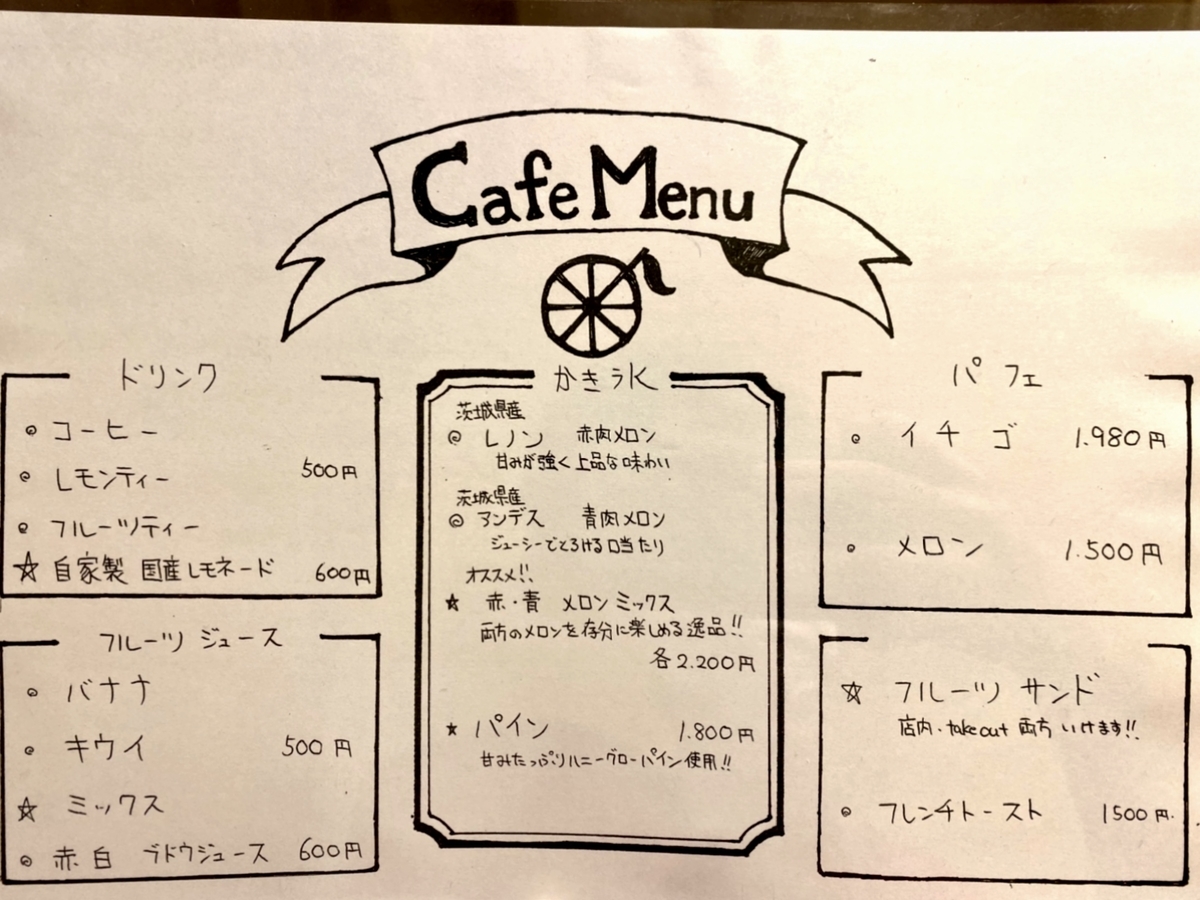 Cafe Menu
ドリンク
コーヒー
レモンティー 500円
フルーツティー
☆ 自家製 国産レモネード 600円
フルーツ ジュース
バナナ
キウイ 500円
☆ ミックス
赤白 ブドウジュース 600円
かき氷
茨城県産
◎ レノン 赤肉メロン
甘みが強く上品な味わい
茨城県産
◎ アンデス 青肉メロン
ジューシーでとろける口当たり
オススメ!!
★ 赤・青 メロン ミックス
両方のメロンを存分に楽しめる逸品!!
各2.200円
★ パイン 1.800円
甘みたっぷりハニーグローパイン使用!!
パフェ
イチゴ 1.980円
メロン 1.500円
☆ フルーツ サンド
店内・take out 両方 いけます!!
フレンチトースト 1500円.